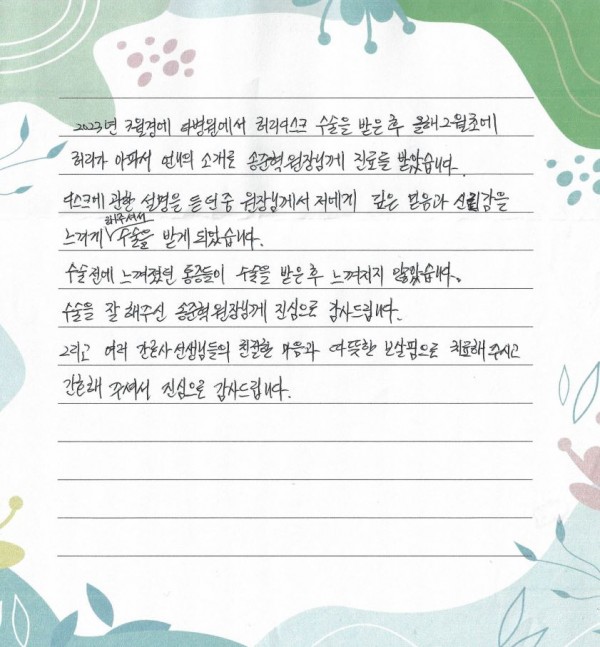 2023년 7월경에 타병원에서 허리디스크 수술을 받은 후 올해 2월초에
허리가 아파서 언니의 소개로 송준혁 원장님께 진료를 받았습니다.
디스크에 관한 설명을 듣던 중 원장님께서 저에게 깊은 믿음과 신뢰감을
느끼게 해주셔서 수술을 받게 되었습니다.
수술 전에 느껴졌던 통증들이 수술을 받은 후 느껴지지 않았습니다.
수술을 잘 해주신 송준혁 원장님께 진심으로 감사드립니다.
그리고 여러 간호사 선생님들의 친절한 마음과 따뜻한 보살핌으로 치료해 주시고
간호해 주셔서 진심으로 감사드립니다.